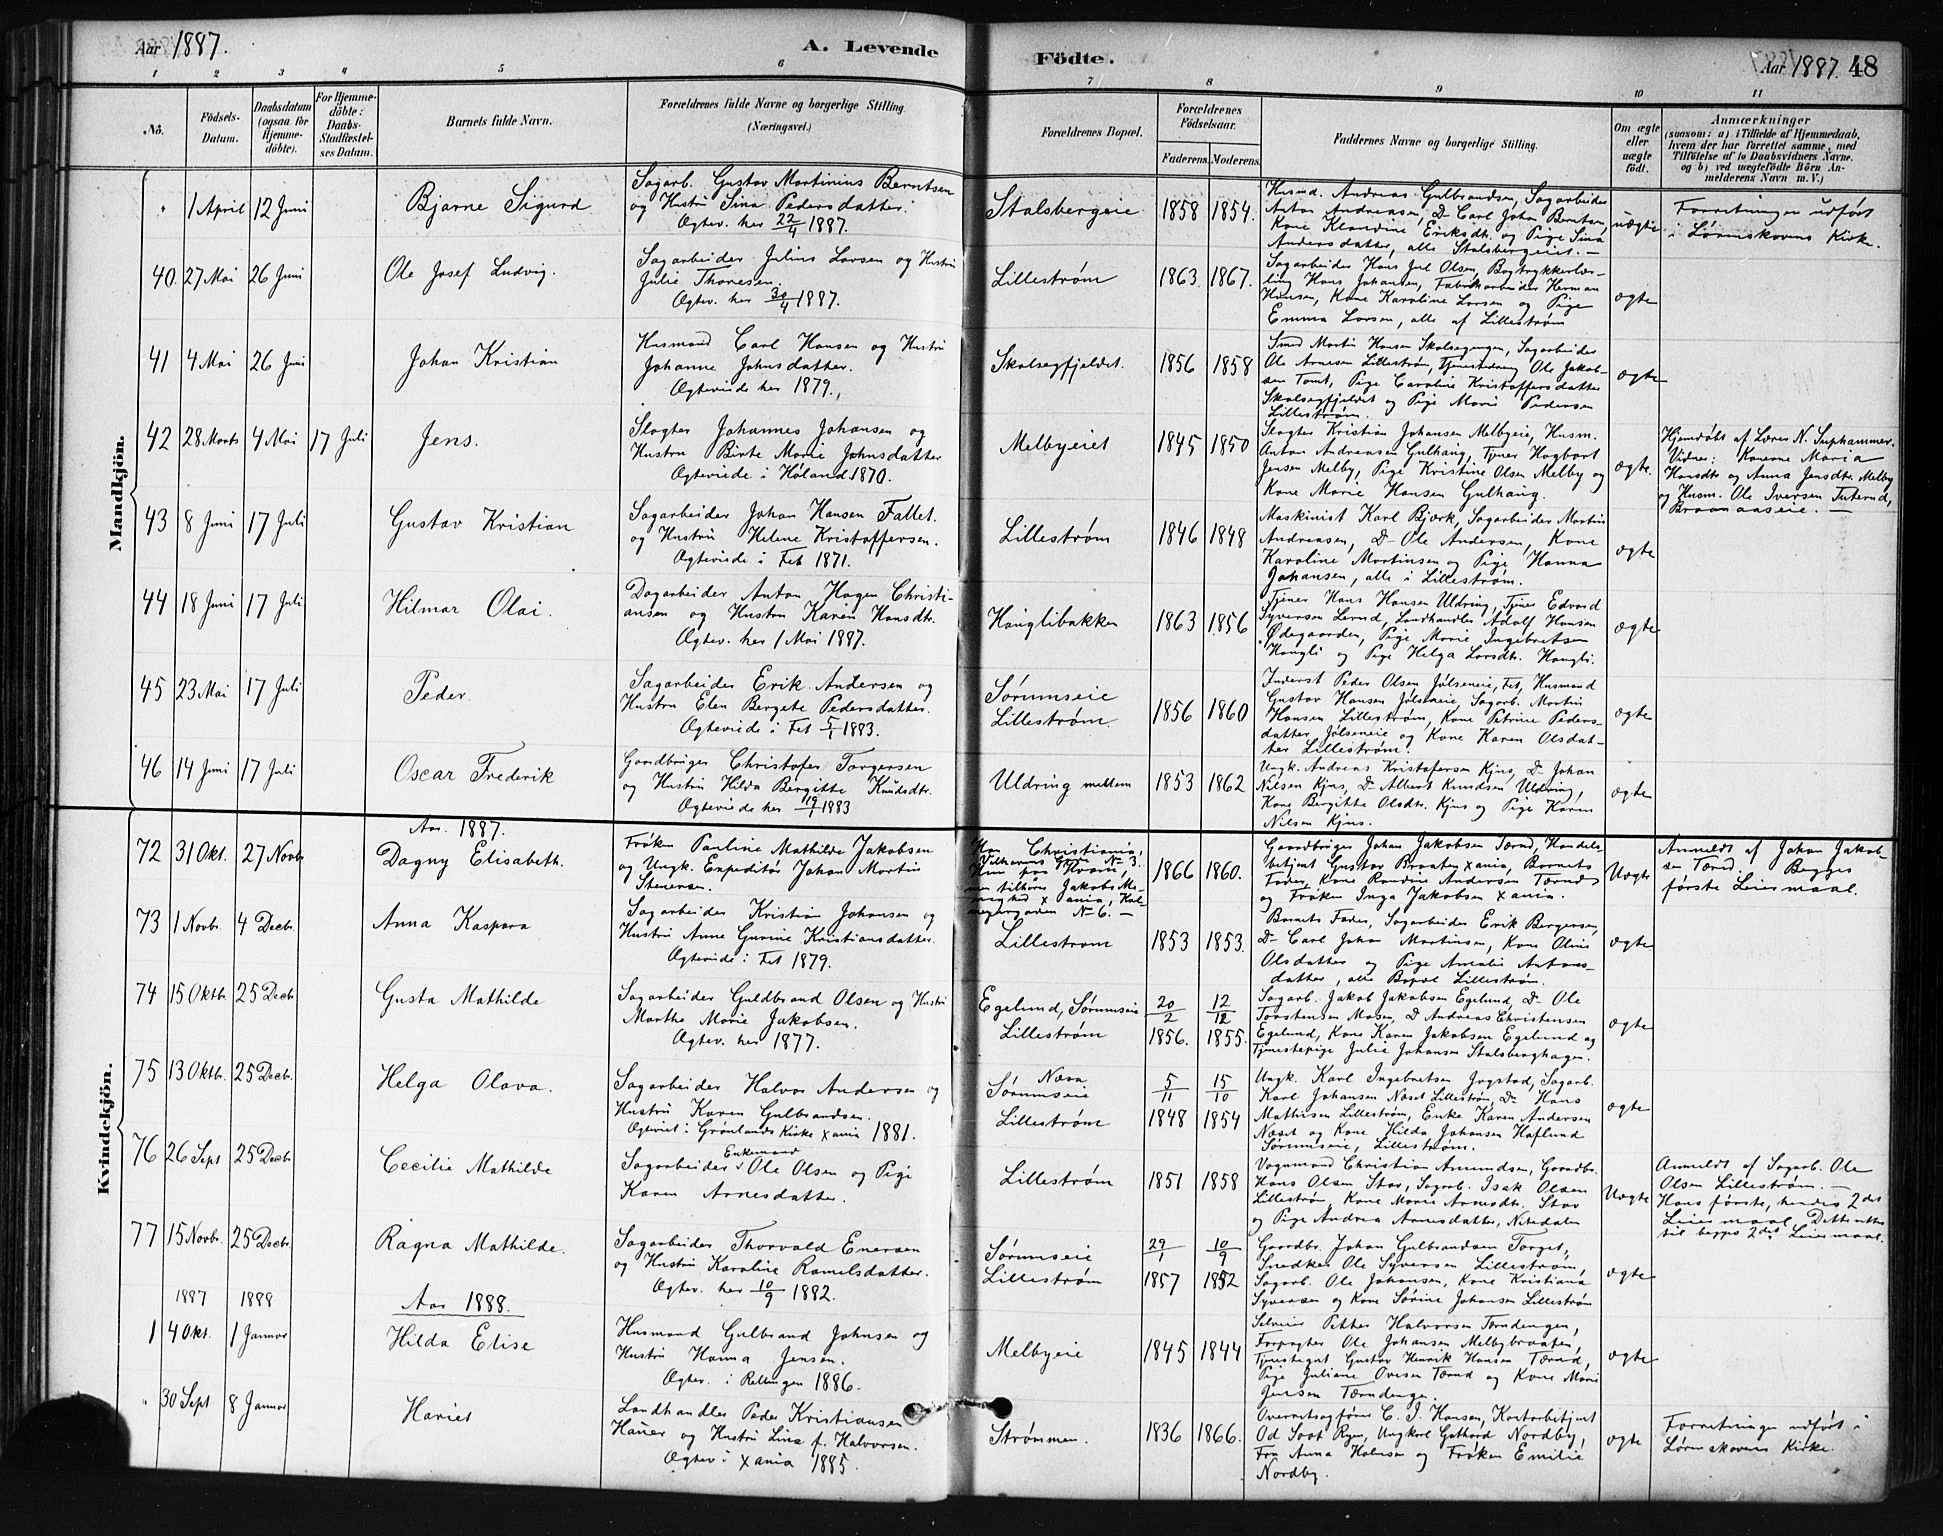 Aar 1887.
A. Levende Födte.
Aar 1887. 48
1 2 3 4 5 6 7 8 9 10 11
No.
Födsels-Datum.
Daabsdatum (ogsaa for Hjemme-döbte).
For Hjemme-döbte: Daabs-Stadfæstel-ses Datum.
Barnets fulde Navn.
Forældrenes fulde Navne og borgerlige Stilling. (Næringsvei.)
Forældrenes Bopæl.
Forældrenes Födselsaar.
Faderens. Moderens.
Faddernes Navne og borgerlige Stilling.
Om ægte eller uægte födt.
Anmærkninger
(saasom: a) i Tilfælde af Hjemmedaab, hvem der har forrettet samme, med Tilföielse af to Daabsvidners Navne, og b) ved uægtefödte Börn An-melderens Navn m. V.)
Mandkjön.
1 April 12 Juni
Bjarne Sigurd
Sagarb. Gustav Martinius Berntsen
og Hustru Sina Pedersdatter.
Ægtev. her 22/4 1887.
Stalsbergeie 1858 1854.
Husmd. Andreas Gulbrandsen, Sagarbeider
Anton Andreasen, Do Carl Johan Berntsen,
Kone Klaudine Eriksdt. og Pige Sina
Andersdatter, alle Stalsbergeiet. –
uægte
Forretningen udført
i Lørenskovens Kirke.
40. 27 Mai 26 Juni
Ole Josef Ludvig.
Sagarbeider Julius Larsen og Hustru
Julie Thoresen.
Ægtev. her 30/4 1887.
Lillestrøm 1863 1867.
Sagarbeider Hans Jul Olsen, Bogtrykkerlær-
ling Hans Johansen, Fabrikarbeider Herman
Hansen, Kone Karoline Larsen og Pige
Emma Larsen, alle af Lillestrøm
ægte
41 4 Mai 26 Juni
Johan Kristian
Husmand Carl Hansen og Hustru
Johanne Johnsdatter.
Ægteviede her 1879.
Skalsegfjeldet. 1856 1858
Smed Martin Hansen Skalsegengen, Sagarbeider
Ole Arnesen Lillestrøm, Tjenestedreng Ole Jakob-
sen Tomt, Pige Caroline Kristoffersdatter
Skalsegfjeldet og Pige Marie Pedersen
Lillestrøm.
ægte
42 28 Marts 4 Mai 17 Juli
Jens.
Slagter Johannes Johansen og
Hustru Birte Marie Johnsdatter
Ægteviede i Høland 1870.
Melbyeiet 1845 1850
Slagter Kristian Johansen Melbyeie, Husm.
Anton Andreasen Gulhaug, Tjener Hagbart
Jensen Melby, Pige Kristine Olsen Melby og
Kone Marie Hansen Gulhaug.
ægte.
Hjemdøbt af Lærer N. Suphammer.
Vidner: Konerne Maria
Hansdtr og Anna Jensdtr. Melby
og Husm. Ole Iversen
43 8 Juni 17 Juli
Gustav Kristian
Sagarbeider Johan Hansen Fallet.
og Hustru Helene Kristoffersen.
Ægteviede i Fet 1871.
Lillestrøm 1846 1848
Maskinist Karl Bjørk, Sagarbeider Martin
Andreasen, Do Ole Andersen, Kone
Karoline Martinsen og Pige Hanna
Johansen, alle i Lillestrøm.
ægte
44 18 Juni 17 Juli
Hilmar Olai.
Dagarbeider Anton Hagen Christi-
ansen og Hustru Karen Hansdtr.
Ægtev. her 1 Mai 1887.
Hauglibakken 1863 1856
Tjener Hans Hansen Uldring, Tjener Edvard
Syversen Lerud, Landhandler Adolf Hansen
Ødegaarden, Pige Marie Ingebretsen
Haugli og Pige Helga Larsdtr. Haugli.
ægte
45 23 Mai 17 Juli
Peder.
Sagarbeider Erik Andersen og
Hustru Elen Bergete Pedersdatter.
Ægteviede i Fet 5/1 1883.
Sørumseie
Lillestrøm. 1856 1860
Inderst Peder Olsen Jølseneie, Fet, Husmand
Gustav Hansen Jølseneie, Sagarb. Martin
Hansen Lillestrøm, Kone Petrine Peders-
datter Jølseneie og Kone Karen Olsdat-
ter Lillestrøm.
ægte
46 14 Juni 17 Juli
Oscar Frederik
Gaardbruger Christofer Torgersen
og Hustru Hilda Bergitte Knudsdtr.
Ægteviede her 1883
Uldring mellem 1853 1862
Ungk. Andreas Kristofersen Kjus, Do Johan
Nilsen Kjus, Do Albert Knudsen Uldring,
Kone Bergitte Olsdtr. Kjus og Pige Karen
Nilsen Kjus.
ægte
Kvindekjön.
Aar 1887.
72 31 Okt. 27 Novb
Dagny Elisabeth.
Frøken Pauline Mathilde Jakobsen
og Ungk. Expeditør Johan Martin
Stenersen.
Han Christiania,
No 3.
No 6. –
1866 1860.
Gaardbruger Johan Jakobsen Tærud, Handels-
betjent Gustav Braaten xania, Barnets
Fader, Kone Randine Andersen Tærud
og Frøken Inga Jakobsen xania.
Uægte
Anmeldt af Johan Jakob-
sen Tærud. Begges
første Leiermaal.
73 1 Novb. 4 Decb.
Anna Kaspara
Sagarbeider Kristian Johansen og
Hustru Anne Gurine Kristiansdatter.
Ægteviede i Fet 1879.
Lillestrøm 1853 1853.
Barnets Fader, Sagarbeider Erik Bergersen,
Do Carl Johan Martinsen, Kone Oline
Olsdatter og Pige Amalie Antons-
datter, alle Bopæl Lillestrøm.
ægte
74 15 Oktb. 25 Decb.
Gusta Mathilde
Sagarbeider Guldbrand Olsen og Hustru
Marthe Marie Jakobsen.
Ægtev. her 1877.
Egelund, Sørumseie
Lillestrøm
20/2 1856. 12/12 1855.
Sagarb. Jakob Jakobsen Egelund, Do Ole
Torstensen Mosen, Do Andreas Christensen
Egelund, Kone Karen Jakobsen Egelund og
Tjenestepige Julie Johansen Stalsberghagen.
ægte
75 13 Oktb. 25 Decb.
Helga Olava.
Sagarbeider Halvor Andersen og
Hustru Karen Gulbrandsen.
Ægteviet i Grønlands Kirke xania 1881.
Sørumseie
Lillestrøm
5/11 1848 15/10 1854
Ungk. Karl Ingebretsen Jogstad, Sagarb.
Karl Johansen Næset Lillestrøm, Do Hans
Mathisen Lillestrøm, Enke Karen Andersen
Næset og Kone Hilda Johansen Haflund
Sørumseie, Lillestrøm.
ægte
76 26 Sept 25 Decb
Cecilie Mathilde
Enkemand
Sagarbeider Ole Olsen og Pige
Karen Arnesdatter.
Lillestrøm 1851 1858
Vognmand Christian Amundsen, Gaardbr.
Hans Olsen Stav, Sagarb. Isak Olsen
Lillestrøm, Kone Marie Arnesdtr. Stav
og Pige Andrea Arnesdatter, Nitedalen
Uægte
Anmeldt af Sagarb. Ole
Olsen Lillestrøm. –
Hans første, hendes 2det
Leiermaal. Dette rettes
til begges 2det Leiermaal.
77 15 Novb. 25 Decb.
Ragna Mathilde.
Sagarbeider Thorvald Enersen
og Hustru Karoline Ramelsdatter.
Ægtev. her 10/9 1882.
Sørumseie
Lillestrøm
29/1 1857 10/9 1852
Gaardbr. Johan Gulbrandsen Torget,
Snedker Ole Syversen Lillestrøm,
Sagarb. Ole Johansen, Kone Kristiana
Syversen og Kone Sørine Johansen Lillestrøm
ægte
1887 1888
Aar 1888.
1 4 Okt. 1 Januar
Hilda Elise
Husmand Gulbrand Johnsen og
Hustru Hanna Jensen.
Ægtev. i Rellingen 1886.
Melbyeie 1845 1844
Selveier Petter Halvorsen Tærudengen,
Forpagter Ole Johansen Melbybraaten,
Tjenestegut Gustav Henrik Hansen Tærud,
Pige Juliane Ovesen Tærud og Kone Marie
Jensen Tærudenge.
ægte
" 30 Sept 8 Januar
Hariet
Landhandler Peder Kristiansen
Hauer og Hustru Lina f. Halvorsen.
Ægtev. i xania 1885.
Strømmen. 1836 1866.
Overretssagfører C. J. Hansen, Kontorbetjent
Od Soot Ryen, Ungkarl Gothard Nordby,
Fru Anna Halvsen og Frøken Emilie
Nordby.
ægte
Forretningen udført i
Lørenskovens Kirke.